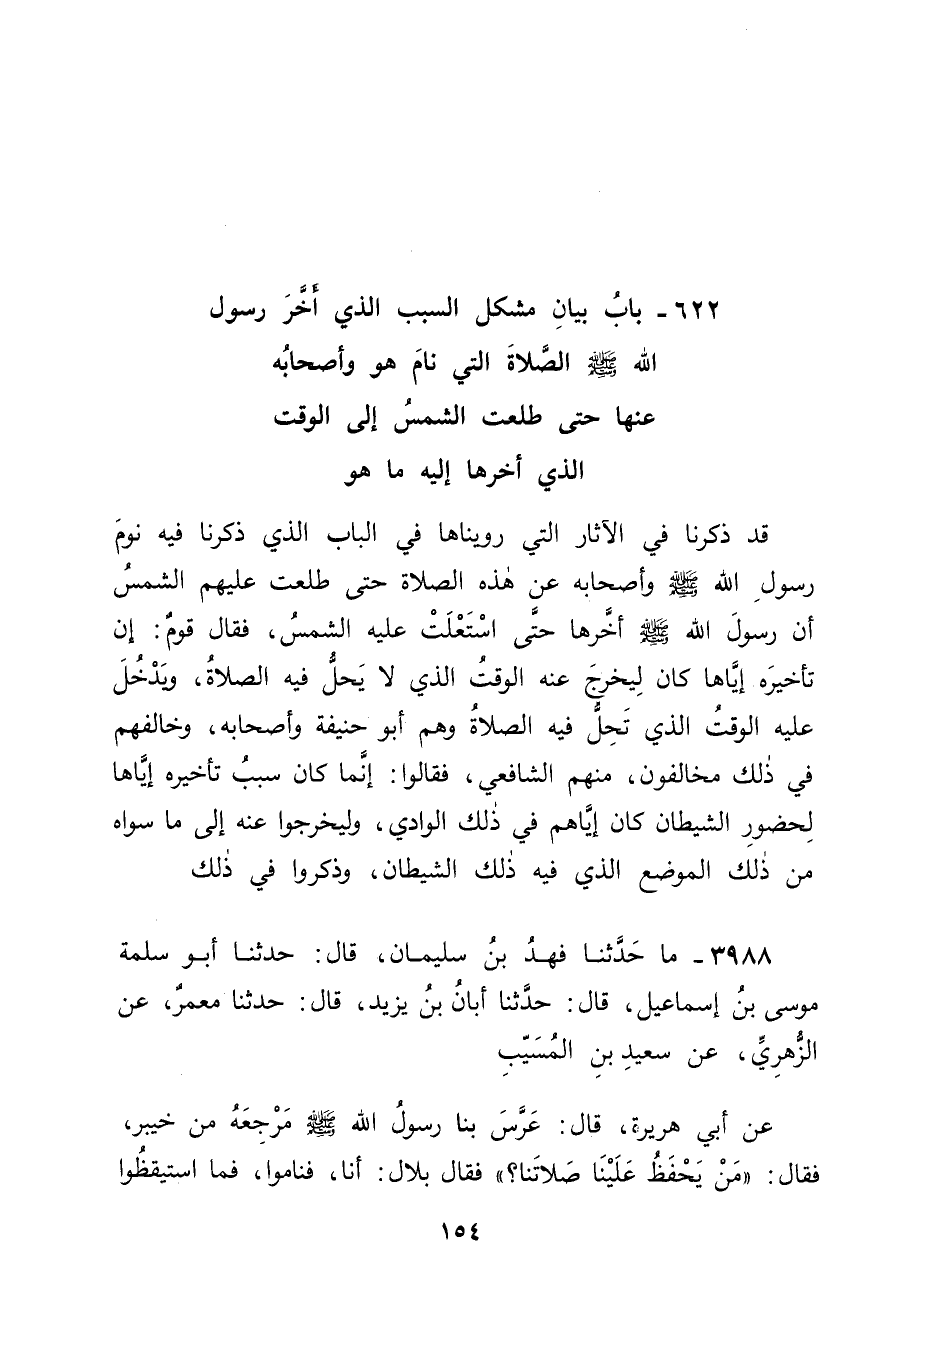 ٦٢٢ـ بابُ بيانِ مشكل السبب الذي أَخَّرَ رسول
الله ﷺ الصَّلاةَ التي نامَ هو وأصحابُه
عنها حتى طلعت الشمسُ إلى الوقت
الذي أخرها إليه ما هو
قد ذكرنا في الآثار التي رويناها في الباب الذي ذكرنا فيه نومَ
رسولِ الله ﷺ وأصحابه عن هٰذه الصلاة حتى طلعت عليهم الشمسُ
أن رسولَ الله ﷺ أخَّرها حتَّى اسْتَعْلَتْ عليه الشمسُ، فقال قومٌ: إن
تأخيرَه إيَّاها كان لِيخرجَ عنه الوقتُ الذي لا يَحلُّ فيه الصلاةُ، ويَدْخُلَ
عليه الوقتُ الذي تَحِلُّ فيه الصلاةُ وهم أبو حنيفة وأصحابه، وخالفهم
في ذٰلك مخالفون، منهم الشافعي، فقالوا: إنَّما كان سببُ تأخيره إيَّاها
لِحضورِ الشيطان كان إيَّاهم في ذٰلك الوادي، وليخرجوا عنه إلى ما سواه
من ذٰلك الموضع الذي فيه ذٰلك الشيطان، وذكروا في ذٰلك
٣٩٨٨ـ ما حَدَّثنا فهدُ بنُ سليمان، قال: حدثنا أبو سلمة
موسى بنُ إسماعيل، قال: حدَّثنا أبانُ بنُ يزيد، قال: حدثنا معمرٌ، عن
الزُّهريِّ، عن سعيدِ بنِ المُسَيّبِ
عن أبي هريرة، قال: عَرَّسَ بنا رسولُ الله ﷺ مَرْجِعَهُ من خيبر،
فقال: «مَنْ يَحْفَظُ عَلَيْنَا صَلاتَنا؟» فقال بلال: أنا، فناموا، فما استيقظُوا
١٥٤